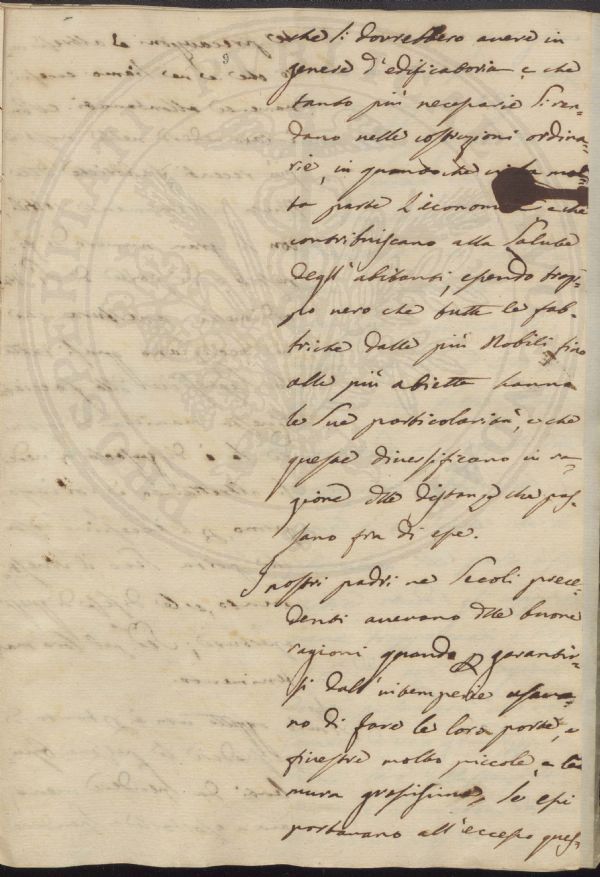 che si dovrebbero avere in
genere d'edificatoria, e che
tanto più necessarie si ren-
dano nelle costruzioni ordina-
rie, in quanto che mol-
ta parte l'economia e che
contribuiscano alla Salute
degl'abitanti, essendo trop-
po vero che tutte le fab-
briche dalle più Nobili fino
alle più abiette hanno
le sue particolarità, e che
queste diversificano in ra-
gione dlle distanze che pas-
sano fra di esse.
I nostri padri ne Secoli prece-
denti avevano dlle buone
ragioni quando p garantir-
si dall'intemperie usava-
no di fare le loro porte, e
finestre molto piccole, e le
mura grossissime, Se essi
portavano all'eccesso ques-